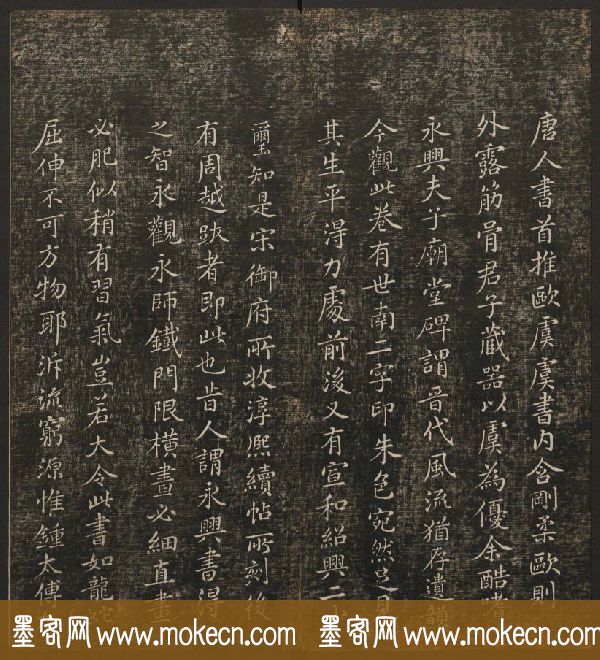 唐人書首推歐虞虞書内含剛柔歐則
外露筋骨君子藏器以虞為優余酷嗜
永興夫子廟堂碑謂晉代風流猶存遺韻
今觀此卷有世南二字印朱色宛然是
其生平得力處前後又有宣和紹興二
璽知是宋御府所收淳熙續帖所刻後
有周越跋者即此也昔人謂永興書得
之智永觀永師鐵門限橫畫必細直畫
必肥似稍有習氣豈若大令此書如龍蛇
屈伸不可方物耶泝流窮源惟鍾太傅
墨客网 www.mokecn.com 墨客网 www.mokecn.com